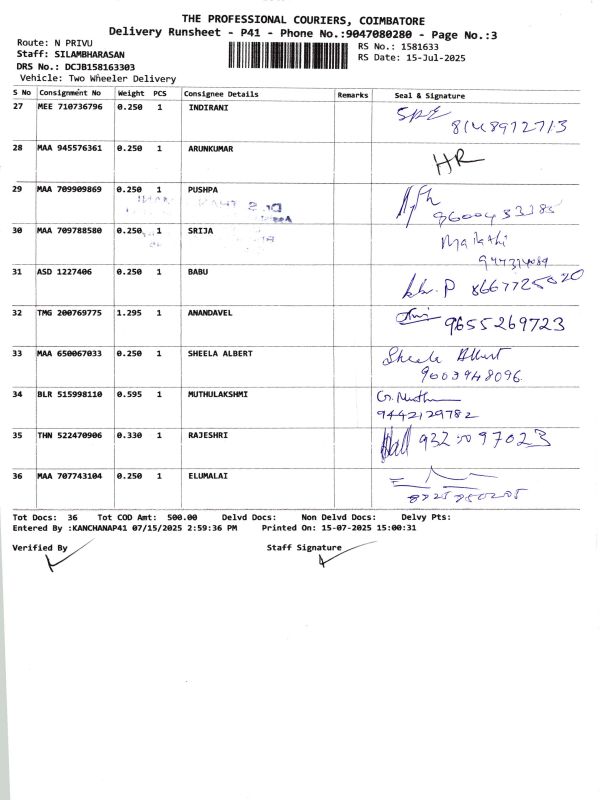 THE PROFESSIONAL COURIERS, COIMBATORE
Delivery Runsheet - P41 - Phone No.:9047080280 - Page No.:3
Route: N PRIVU
RS No.: 1581633
Staff: SILAMBHARASAN
RS Date: 15-Jul-2025
DRS No.: DCJB158163303
Vehicle: Two Wheeler Delivery
S No Consignment No Weight PCS Consignee Details Remarks Seal & Signature
27 MEE 710736796 0.250 1 INDIRANI
8148972713
28 MAA 945576361 0.250 1 ARUNKUMAR HR
29 MAA 709909869 0.250 1 PUSHPA
30 MAA 709788580 0.250 1 SRIJA Malathi
31 ASD 1227406 0.250 1 BABU
32 TMG 200769775 1.295 1 ANANDAVEL 9655269723
33 MAA 650067033 0.250 1 SHEELA ALBERT Sheela Albert
9003948096
34 BLR 515998110 0.595 1 MUTHULAKSHMI
9442129782
35 THN 522470906 0.330 1 RAJESHRI
36 MAA 707743104 0.250 1 ELUMALAI
Tot Docs: 36 Tot COD Amt: 500.00 Delvd Docs: Non Delvd Docs: Delvy Pts:
Entered By :KANCHANAP41 07/15/2025 2:59:36 PM Printed On: 15-07-2025 15:00:31
Verified By Staff Signature